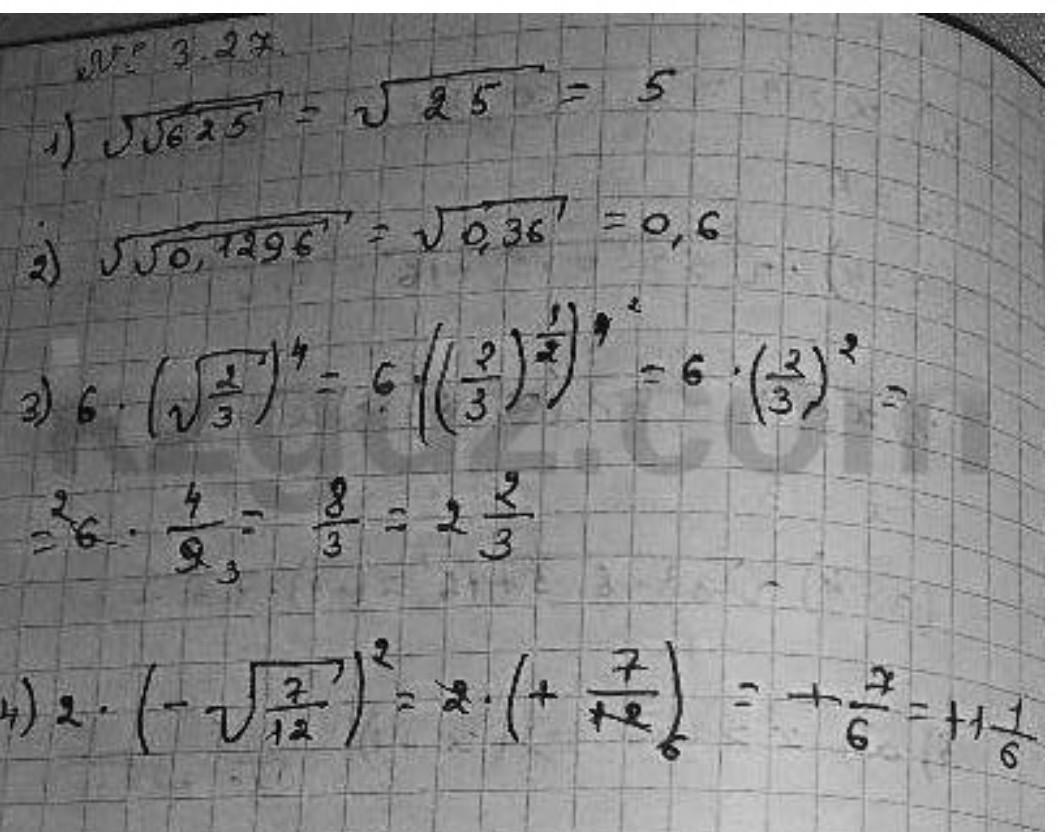 № 3.27.
1) √√625 = √25 = 5
2) √√0,1296 = √0,36 = 0,6
3) 6 · (√2/3)^4 = 6 · ((2/3)^1/2)^4 ^2 = 6 · (2/3)^2 =
= ^2 6 · 4/9 3 = 8/3 = 2 2/3
4) 2 · (- √7/12)^2 = 2 · (+ 7/12 6) = + 7/6 = +1 1/6
kzgdz.com